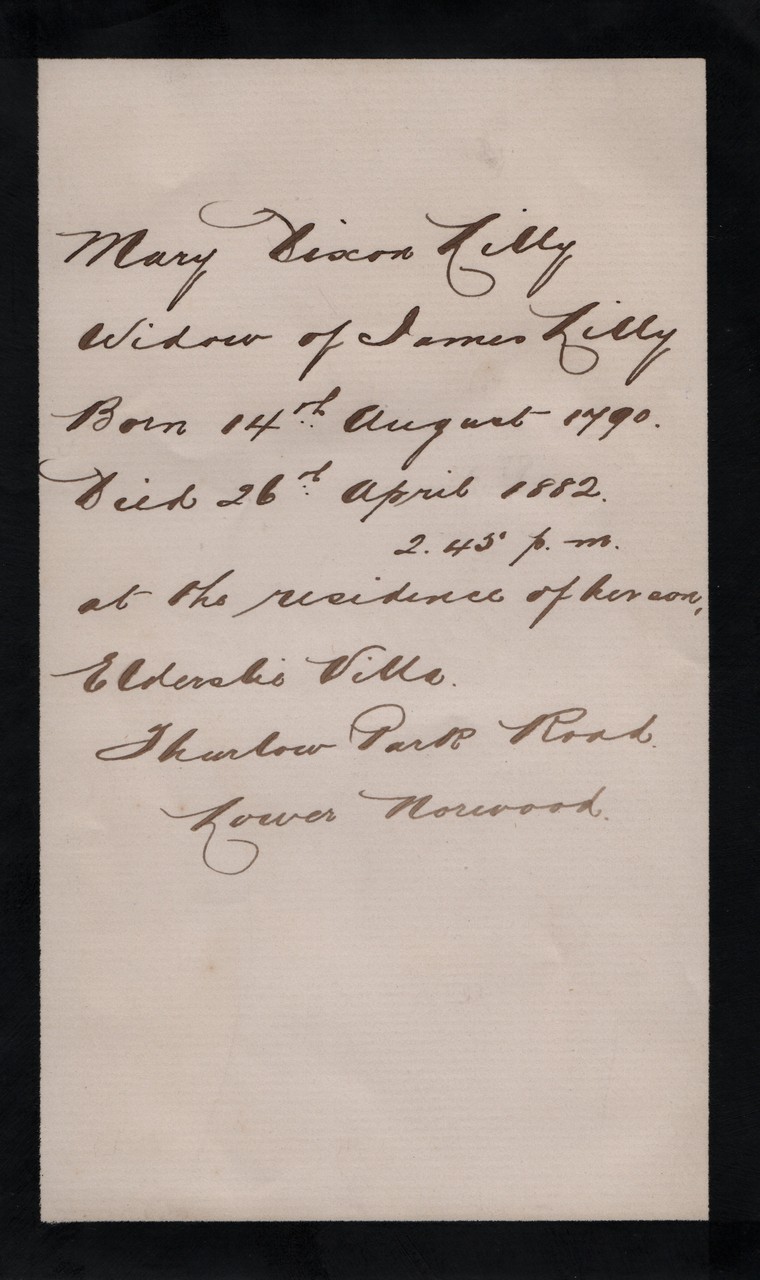 Mary Dixon Lilly
Widow of James Lilly
Born 14th August 1790.
Died 26th April 1882.
2.45 p.m.
at the residence of her son,
Elderslie Villa.
Thurlow Park Road.
Lower Norwood.